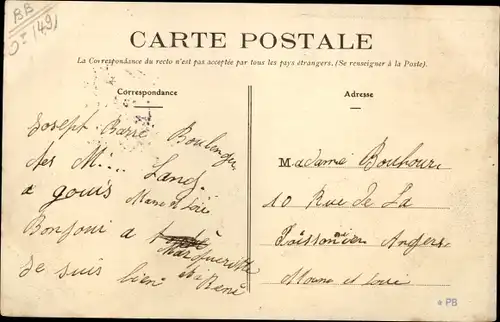 BB
(49)
CARTE POSTALE
La Correspondance du recto n'est pas acceptée par tous les pays étrangers. (Se renseigner à la Poste).
Correspondance
Joseph Barré Boulenger
Des M.... Land.
a gouis Mane et Loire
Bonjoui a
Margueritte
et a René
Je suis bien
Adresse
Madame Bouhour
10 Rue de La
Angers
Maine et Loire
PB